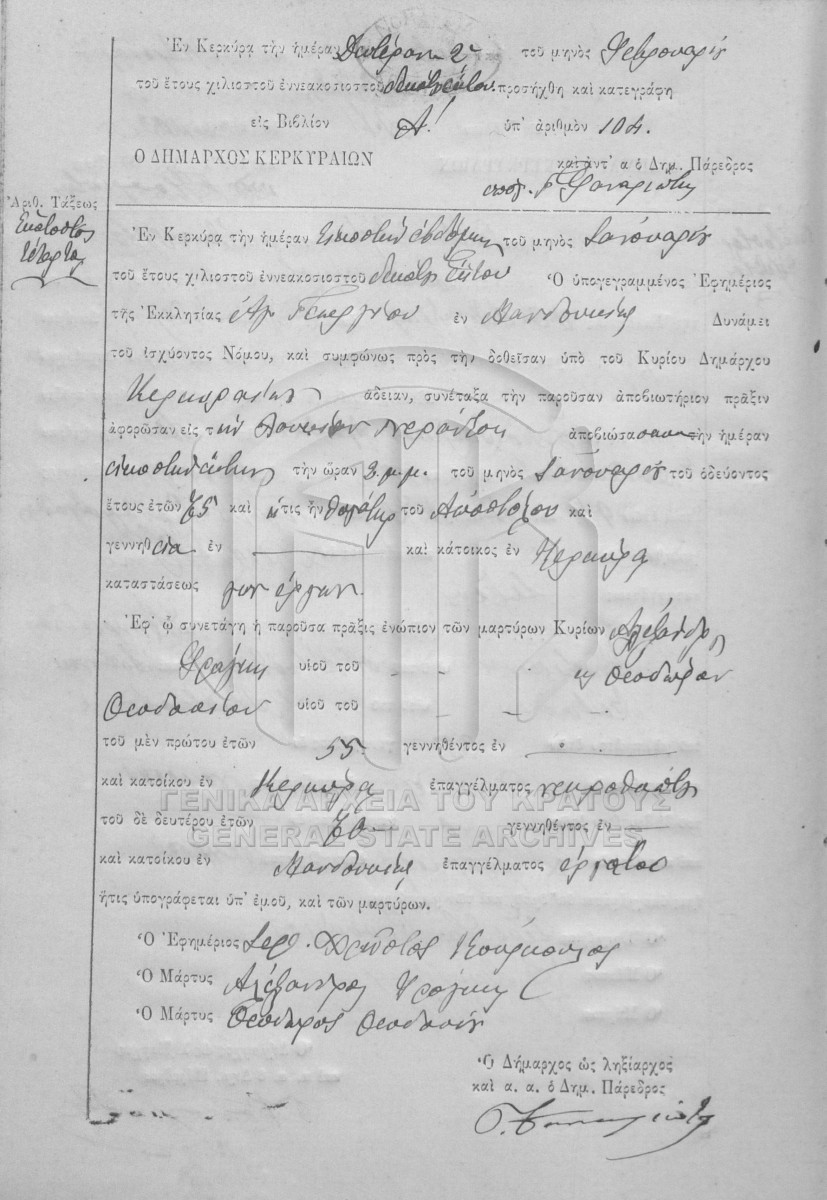 Ἐν Κερκύρᾳ τὴν ἡμέραν Δευτέραν 2αν τοῦ μηνὸς Φεβρουαρίου
τοῦ ἔτους χιλιοστοῦ ἐννεακοσιοστοῦ δεκάτου ἕκτου προσήχθη καὶ κατεγράφη
εἰς Βιβλίον Α! ὑπ' ἀριθμὸν 104.
Ο ΔΗΜΑΡΧΟΣ ΚΕΡΚΥΡΑΙΩΝ
καὶ ἀντ' α ὁ Δημ. Πάρεδρος
Ἀριθ. Τάξεως
Ἑκατοστὸς
τέταρτος
Ἐν Κερκύρᾳ τὴν ἡμέραν εἰκοστὴν ἑβδόμην τοῦ μηνὸς Ἰανουαρίου
τοῦ ἔτους χιλιοστοῦ ἐννεακοσιοστοῦ δεκάτου ἕκτου Ὁ ὑπογεγραμμένος Ἐφημέριος
τῆς Ἐκκλησίας Ἁγ Γεωργίου ἐν Μανδουκίῳ Δυνάμει
τοῦ ἰσχύοντος Νόμου, καὶ συμφώνως πρὸς τὴν δοθεῖσαν ὑπὸ τοῦ Κυρίου Δημάρχου
Κερκυραίων ἄδειαν, συνέταξα τὴν παροῦσαν ἀποβιωτήριον πρᾶξιν
ἀφορῶσαν εἰς τὴν ἀποβιώσασαν τὴν ἡμέραν
εἰκοστὴν ἕκτην τὴν ὥραν μ.μ. τοῦ μηνὸς Ἰανουαρίου τοῦ ὁδεύοντος
ἔτους ἐτῶν καὶ ἥτις ἦν θυγάτηρ τοῦ Ἀποστόλου καὶ
γεννηθεῖσα ἐν καὶ κάτοικος ἐν Κερκύρᾳ
καταστάσεως
Ἐφ' ᾧ συνετάγη ἡ παροῦσα πρᾶξις ἐνώπιον τῶν μαρτύρων Κυρίων Ἀλεξάνδρου
υἱοῦ τοῦ κ Θεοδώρου
Θεοδοσίου υἱοῦ τοῦ
τοῦ μὲν πρώτου ἐτῶν 55 γεννηθέντος ἐν
καὶ κατοίκου ἐν Κερκύρᾳ ἐπαγγέλματος νεκροθάπτης
τοῦ δὲ δευτέρου ἐτῶν γεννηθέντος ἐν
καὶ κατοίκου ἐν Μανδουκίῳ ἐπαγγέλματος ἐργάτου
ἥτις ὑπογράφεται ὑπ' ἐμοῦ, καὶ τῶν μαρτύρων.
Ὁ Ἐφημέριος Ἱερ. Χρῆστος
Ὁ Μάρτυς Ἀλέξανδρος
Ὁ Μάρτυς Θεόδωρος Θεοδοσίου
Ὁ Δήμαρχος ὡς ληξίαρχος
καὶ α. α. ὁ Δημ. Πάρεδρος
ΓΕΝΙΚΑ ΑΡΧΕΙΑ ΤΟΥ ΚΡΑΤΟΥΣ
GENERAL STATE ARCHIVES